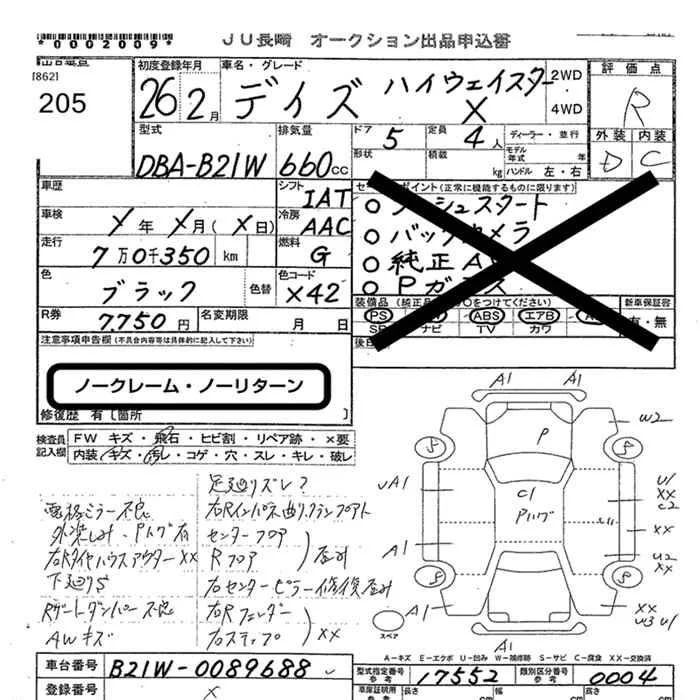 *0002009*
JU長崎 オークション出品申込書
[862]
205
初度登録年月
26年 2月
車名・グレード
デイズ ハイウェイスター X
2WD
4WD
評価点
R
外装 内装
D C
型式
DBA-B21W
排気量
660cc
ドア 5
定員 4人
形状
積載 kg
ディーラー・並行
モデル年式 年
ハンドル 左・右
車歴
シフト IAT
車検 X年 X月(X日)
冷房 AAC
走行 7万0千350 km
燃料 G
色 ブラック
色替
色コード X42
R券 7,750円
名変期限 月 日
セールスポイント(正常に機能するものに限ります)
○ プッシュスタート
○ バックカメラ
○ 純正A
○ Pガラス
装備品(純正品
○をつけてください)
新車保証書
有・無
PS
ABS
エアB
SR
ナビ
TV
カワ
注意事項申告欄(不具合内容等は具体的に記入して下さい)
ノークレーム・ノーリターン
修復歴 有[箇所 ]
検査員記入欄
FW キズ・飛石・ヒビ割・リペア跡・×要
内装・キズ・汚レ・コゲ・穴・スレ・キレ・破レ
電格ミラー不良
外装しみ・Pハゲ有
右Rタイヤハウスアウター XX
下廻りS
Rゲートダンパー不良
AWキズ
足廻りズレ?
右Rインパネ曲り
センターフロア
Rフロア
歪み
右センターピラー修復歪み
右Rフェンダー
右ステップ
XX
A1
A1
W2
P
S
S
C1
Pハゲ
A1
U1
XX
C2
XX
A1
U2
XX
S
S
A1
XX
W3 U1
スペア
A1
A=キズ E=エクボ U=凹み W=補修跡 S=サビ C=腐食 XX=交換済
車台番号 B21W-0089688
登録番号 X
型式指定番号 参考 17552
類別区分番号 参考 0004
車庫証明用
長さ
幅
高さ